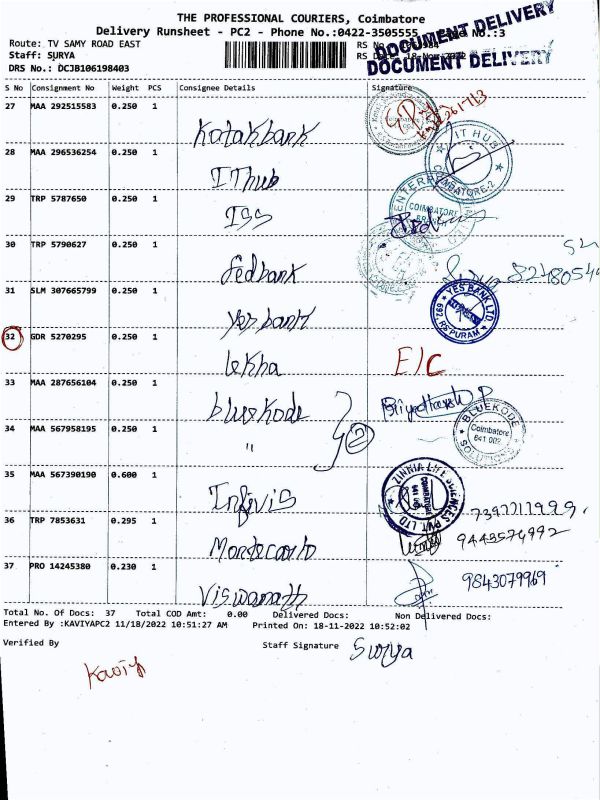 THE PROFESSIONAL COURIERS, Coimbatore
Delivery Runsheet - PC2 - Phone No.:0422-3505555 No.:3
DOCUMENT DELIVERY
DOCUMENT DELIVERY
Route: TV SAMY ROAD EAST RS No
Staff: SURYA RS D 18-Nov-2022
DRS No.: DCJB106198403
S No Consignment No Weight PCS Consignee Details Signature
27 MAA 292515583 0.250 1
Kotakbank
28 MAA 296536254 0.250 1
IThub
IT HUB COIMBATORE-2
29 TRP 5787650 0.250 1
ISS
COIMBATORE
30 TRP 5790627 0.250 1
fedbank
31 SLM 307665799 0.250 1
Yesbank
YES BANK LTD. RS PURAM
32 GDR 5270295 0.250 1
lekha E/C
33 MAA 287656104 0.250 1
bluekode
34 MAA 567958195 0.250 1
" 2
BLUEKODE SOLUTIONS Coimbatore 641 002
35 MAA 567390190 0.600 1
Infivis 7397711999
ZINNIA LIFE SCIENCES PVT LTD COIMBATORE
36 TRP 7853631 0.295 1
Montecarlo 9443574992
37 PRO 14245380 0.230 1
Viswanath 9843079969
Total No. Of Docs: 37 Total COD Amt: 0.00 Delivered Docs: Non Delivered Docs:
Entered By :KAVIYAPC2 11/18/2022 10:51:27 AM Printed On: 18-11-2022 10:52:02
Verified By Staff Signature Surya
Kaviy